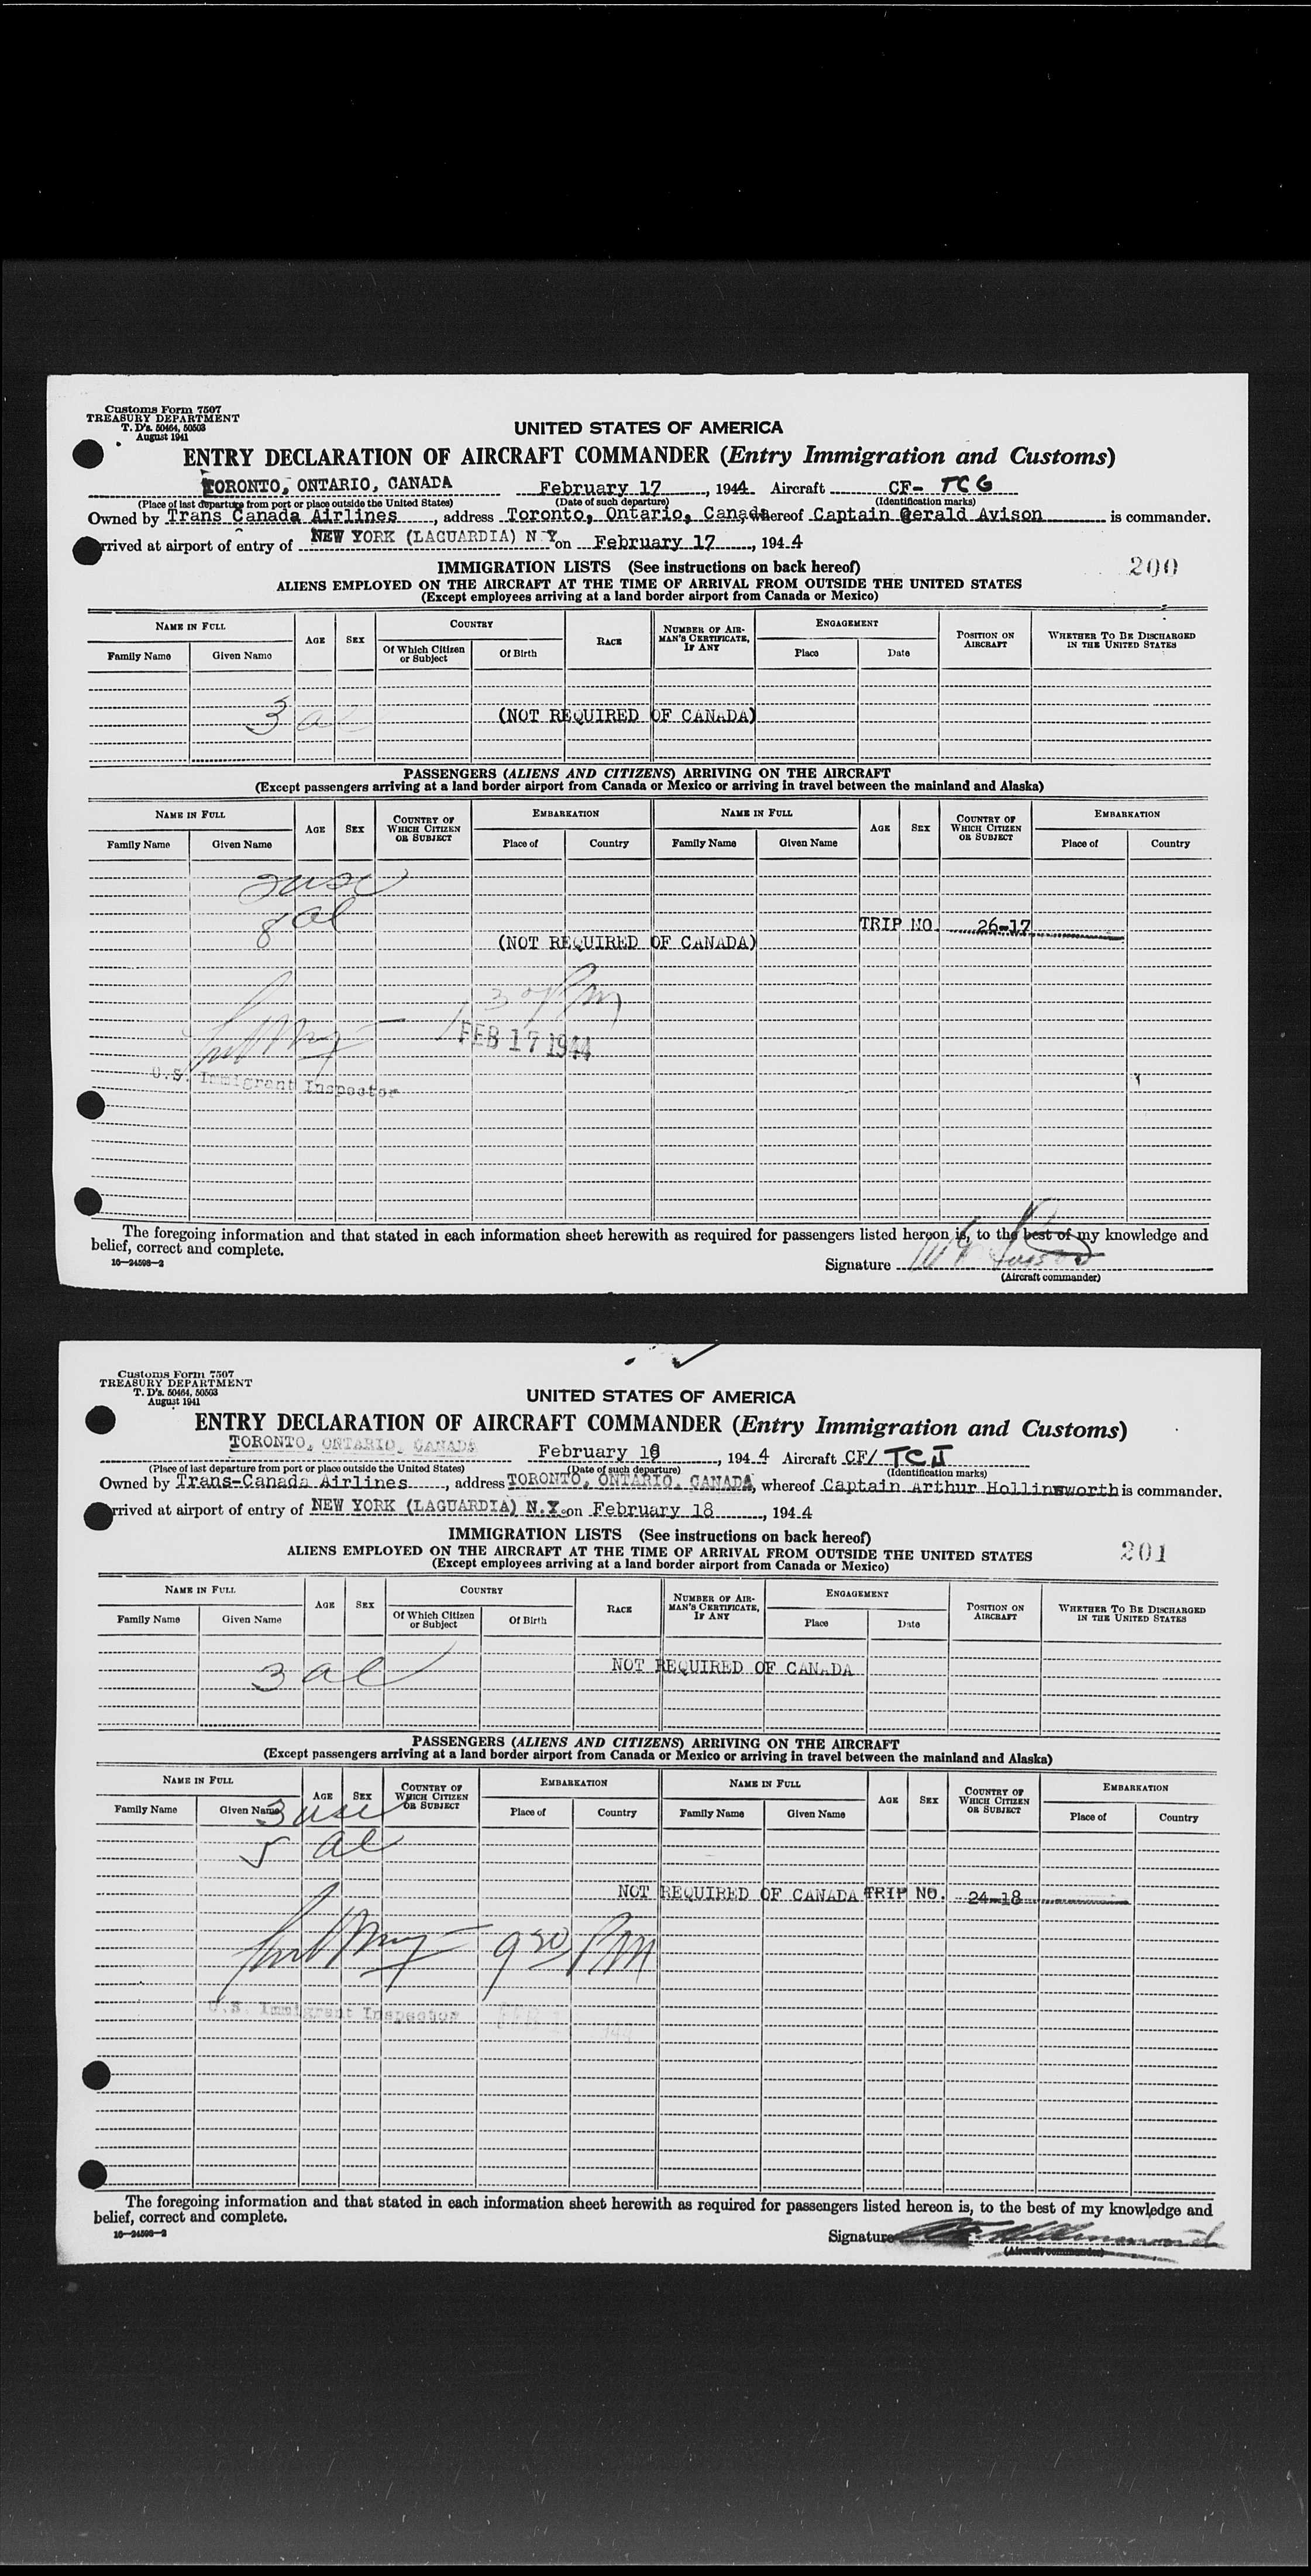 Customs Form 7507
TREASURY DEPARTMENT
T. D's. 50464, 50503
August 1941
UNITED STATES OF AMERICA
ENTRY DECLARATION OF AIRCRAFT COMMANDER (Entry Immigration and Customs)
TORONTO, ONTARIO, CANADA February 17, 1944 Aircraft CF- TCG
(Place of last departure from port or place outside the United States) (Date of such departure) (Identification marks)
Owned by Trans Canada Airlines, address Toronto, Ontario, Canada, whereof Captain Gerald Avison is commander.
Arrived at airport of entry of NEW YORK (LAGUARDIA) N Y on February 17, 1944
IMMIGRATION LISTS (See instructions on back hereof)
200
ALIENS EMPLOYED ON THE AIRCRAFT AT THE TIME OF ARRIVAL FROM OUTSIDE THE UNITED STATES
(Except employees arriving at a land border airport from Canada or Mexico)
NAME IN FULL AGE SEX COUNTRY RACE NUMBER OF AIRMAN'S CERTIFICATE, IF ANY ENGAGEMENT POSITION ON AIRCRAFT WHETHER TO BE DISCHARGED IN THE UNITED STATES
Family Name Given Name Of Which Citizen or Subject Of Birth Place Date
3 al (NOT REQUIRED OF CANADA)
PASSENGERS (ALIENS AND CITIZENS) ARRIVING ON THE AIRCRAFT
(Except passengers arriving at a land border airport from Canada or Mexico or arriving in travel between the mainland and Alaska)
NAME IN FULL AGE SEX COUNTRY OF WHICH CITIZEN OR SUBJECT EMBARKATION NAME IN FULL AGE SEX COUNTRY OF WHICH CITIZEN OR SUBJECT EMBARKATION
Family Name Given Name Place of Country Family Name Given Name Place of Country
2 usc
8 al TRIP NO. 26-17
(NOT REQUIRED OF CANADA)
FEB 17 1944
U.S. Immigrant Inspector
The foregoing information and that stated in each information sheet herewith as required for passengers listed hereon is, to the best of my knowledge and
belief, correct and complete.
16—24598-2
Signature
(Aircraft commander)
Customs Form 7507
TREASURY DEPARTMENT
T. D's. 50464, 50503
August 1941
UNITED STATES OF AMERICA
ENTRY DECLARATION OF AIRCRAFT COMMANDER (Entry Immigration and Customs)
TORONTO, ONTARIO, CANADA February 18, 1944 Aircraft CF/ TCJ
(Place of last departure from port or place outside the United States) (Date of such departure) (Identification marks)
Owned by Trans-Canada Airlines, address TORONTO, ONTARIO, CANADA, whereof Captain Arthur Hollinsworth is commander.
Arrived at airport of entry of NEW YORK (LAGUARDIA) N.Y. on February 18, 1944
IMMIGRATION LISTS (See instructions on back hereof)
201
ALIENS EMPLOYED ON THE AIRCRAFT AT THE TIME OF ARRIVAL FROM OUTSIDE THE UNITED STATES
(Except employees arriving at a land border airport from Canada or Mexico)
NAME IN FULL AGE SEX COUNTRY RACE NUMBER OF AIRMAN'S CERTIFICATE, IF ANY ENGAGEMENT POSITION ON AIRCRAFT WHETHER TO BE DISCHARGED IN THE UNITED STATES
Family Name Given Name Of Which Citizen or Subject Of Birth Place Date
3 al NOT REQUIRED OF CANADA
PASSENGERS (ALIENS AND CITIZENS) ARRIVING ON THE AIRCRAFT
(Except passengers arriving at a land border airport from Canada or Mexico or arriving in travel between the mainland and Alaska)
NAME IN FULL AGE SEX COUNTRY OF WHICH CITIZEN OR SUBJECT EMBARKATION NAME IN FULL AGE SEX COUNTRY OF WHICH CITIZEN OR SUBJECT EMBARKATION
Family Name Given Name Place of Country Family Name Given Name Place of Country
3 usc
5 al
NOT REQUIRED OF CANADA TRIP NO. 24-18
9 30 PM
U.S. Immigrant Inspector
The foregoing information and that stated in each information sheet herewith as required for passengers listed hereon is, to the best of my knowledge and
belief, correct and complete.
16—24598-2
Signature
(Aircraft commander)